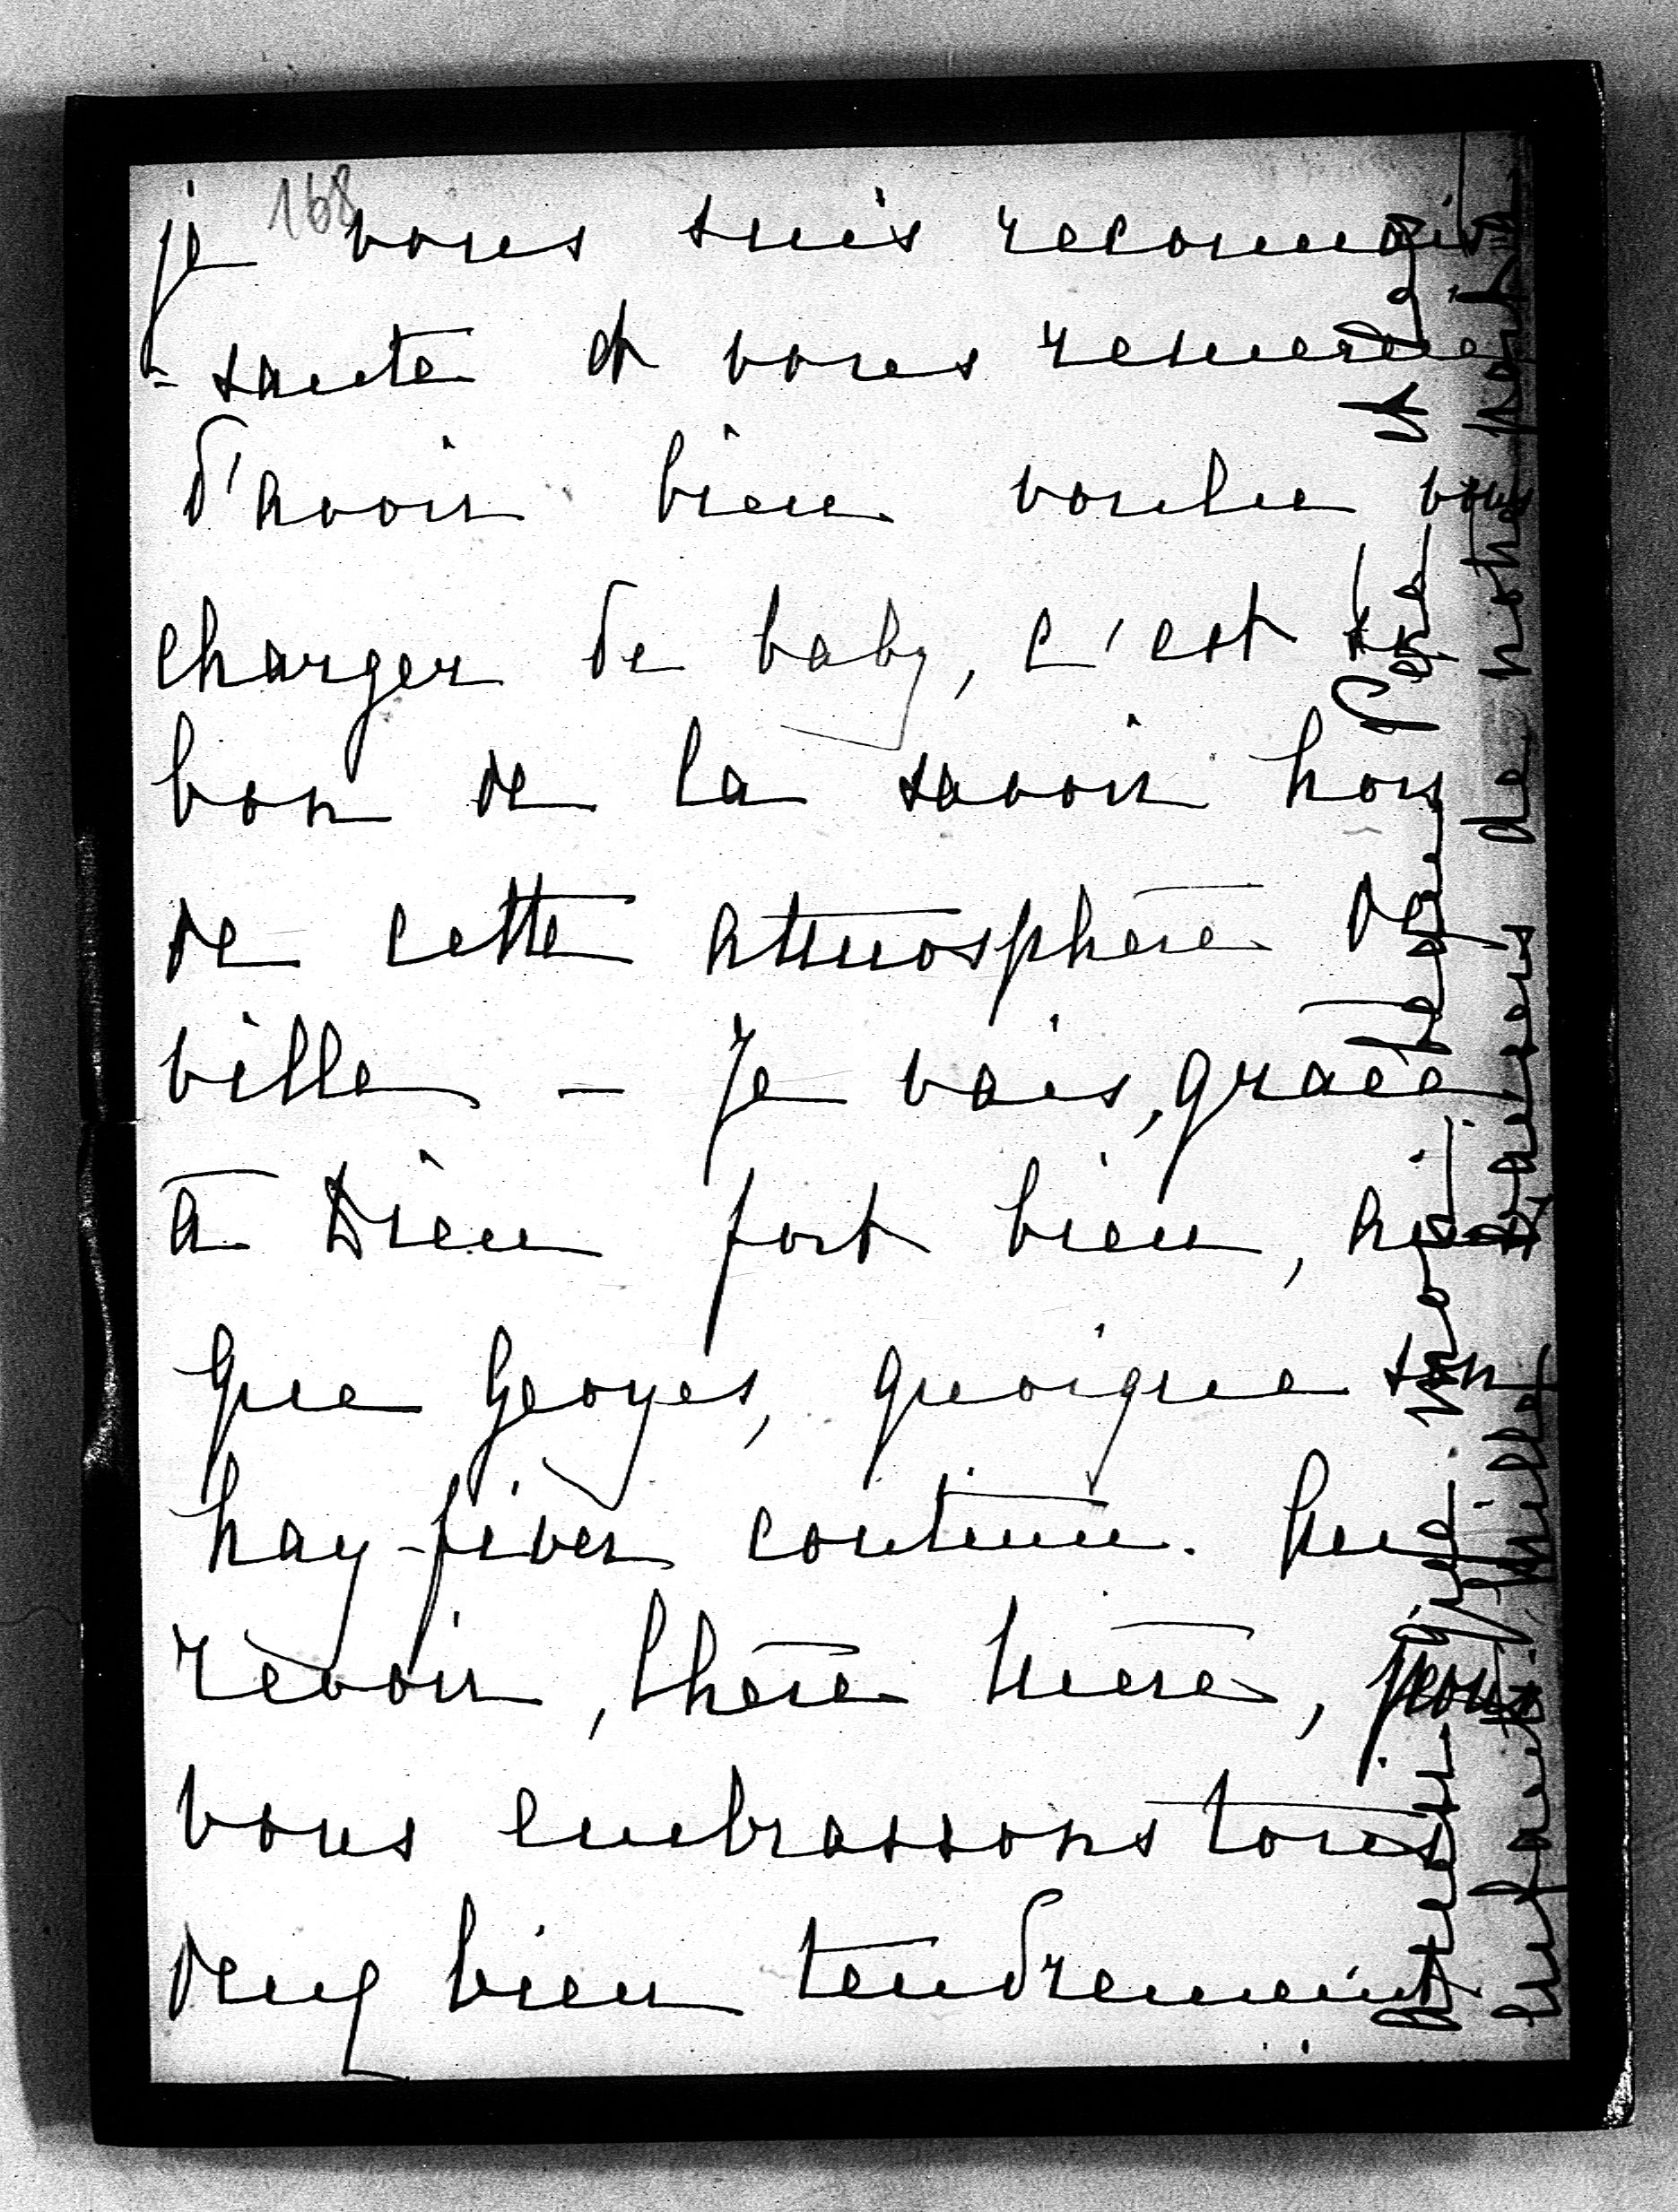 168
je vous suis reconnais
= sante et vous remercie
d'avoir bien voulu vous
charger de baby, c'est si
bon de la savoir hors
de cette atmosphère de
ville – Je vais, grâce
à Dieu fort bien, ainsi
que Georges, quoique son
hay-fiver continue. Au
revoir, Chère Mère, nous
vous embrassons tous
deux bien tendrement
ainsi que notre
Père et
enfants. Mille
baisers de notre part